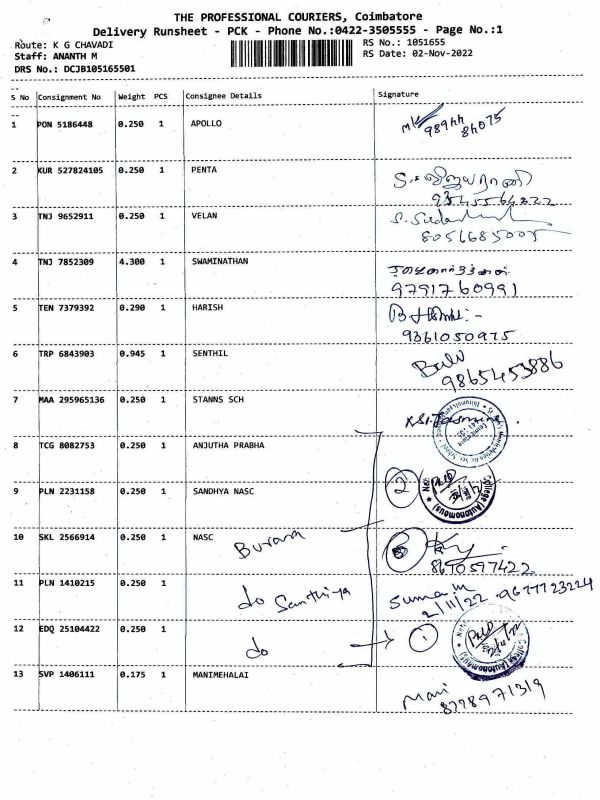 THE PROFESSIONAL COURIERS, Coimbatore
Delivery Runsheet - PCK - Phone No.:0422-3505555 - Page No.:1
Route: K G CHAVADI
RS No.: 1051655
Staff: ANANTH M
RS Date: 02-Nov-2022
DRS No.: DCJB105165501
S No Consignment No Weight PCS Consignee Details Signature
1 PON 5186448 0.250 1 APOLLO
2 KUR 527824105 0.250 1 PENTA
3 TNJ 9652911 0.250 1 VELAN
8056685005
4 TNJ 7852309 4.300 1 SWAMINATHAN
9791760991
5 TEN 7379392 0.290 1 HARISH
9361050975
6 TRP 6843903 0.945 1 SENTHIL
9865453886
7 MAA 295965136 0.250 1 STANNS SCH
8 TCG 8082753 0.250 1 ANJUTHA PRABHA
9 PLN 2231158 0.250 1 SANDHYA NASC
2
College (Autonomous)
10 SKL 2566914 0.250 1 NASC
8670597422
11 PLN 1410215 0.250 1 do Santhiya
Suma.m
2/11/22 .9677723224
12 EDQ 25104422 0.250 1 do
1
College (Autonomous)
13 SVP 1406111 0.175 1 MANIMEHALAI
Mani
8778971319